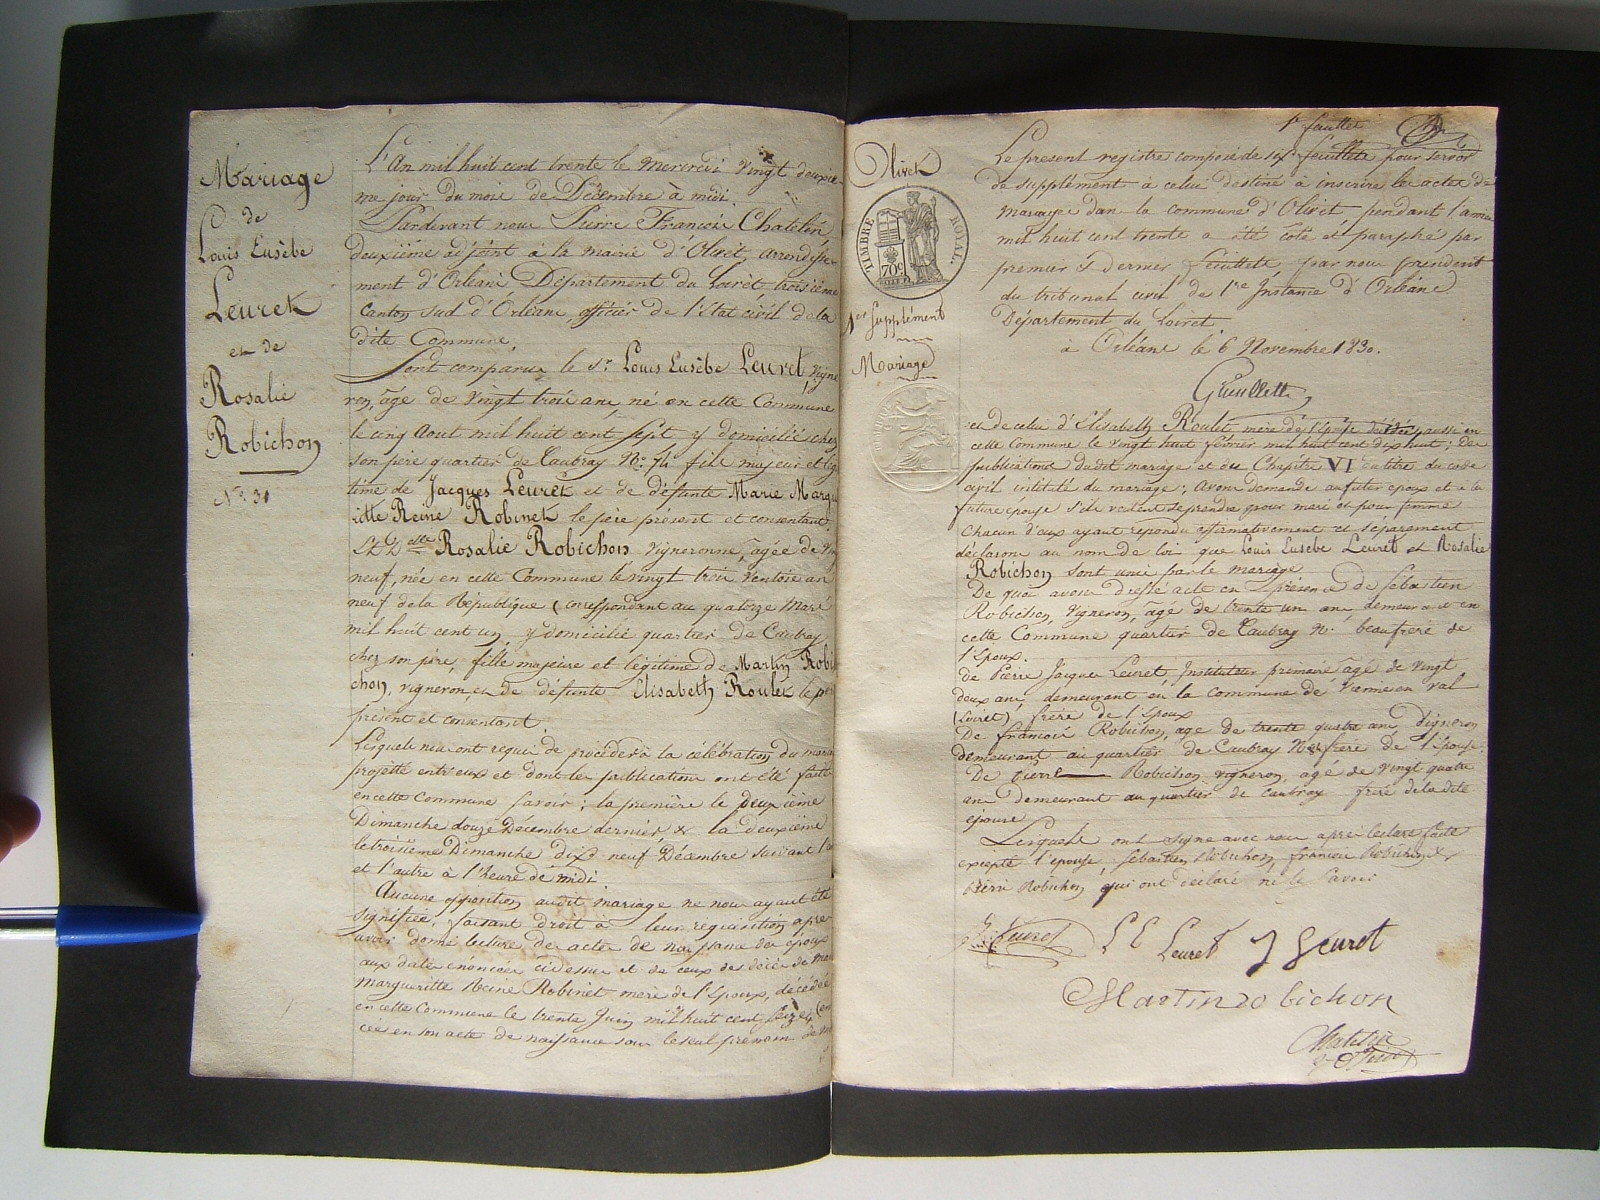 Mariage
de
Louis Eusèbe
Leuret
et de
Rosalie
Robichon
N° 31
L'An mil huit cent trente le Mercredi vingt deuxiè-
me jour du mois de Décembre à midi.
Pardevant nous Pierre François Chatelin
deuxième adjoint à la mairie d'Olivet, arrondisse-
ment d'Orléans Département du Loiret troisième
Canton sud d'Orléans, officier de l'état civil de la
dite Commune.
Sont comparus le Sr. Louis Eusèbe Leuret, vigne
ron, âgé de vingt trois ans, né en cette Commune
le cinq Aout mil huit cent sept, y domicilié chez
son père quartier de Caubray No. 74 fils majeur et légi
time de Jacques Leuret et de défunte Marie Margue
ritte Reine Robinet le père présent et consentant.
Et Delle Rosalie Robichon vigneronne, agée de vingt
neuf, née en cette Commune le vingt trois Ventose an
neuf de la République (correspondant au quatorze Mars
mil huit cent un, y domicilié quartier de Caubray
chez son père, fille majeure et légitime de Martin Robi
chon, vigneron, et de défunte Elisabeth Roulet le père
présent et consentant.
Lesquels nous ont requis de procéder à la célébration du mariage
projetté entr'eux et dont les publications ont été faites
en cette Commune savoir; la première le deuxième
Dimanche douze Décembre dernier & la deuxième
le troisième Dimanche dix neuf Décembre suivant l'un
et l'autre à l'heure de midi
Aucune opposition audit mariage ne nous ayant été
signifiée, faisant droit à leur réquisition après
avoir donné lecture de actes de naissance des époux
aux dates énoncées cidessus et de ceux des décès de Marie
Margueritte Reine Robinet mère de l'époux, décédée
en cette Commune le trente Juin mil huit cent seize,
cée en son acte de naissance sous le seul prénom de
1er feuillet
Olivet
TIMBRE ROYAL.
70c
1er Supplément
Mariage
Le present registre composé de six feuillets pour servir
de supplément à celui destiné à inscrire les actes de
mariage dans la commune d'Olivet, pendant l'année
mil huit cent trente a été coté et paraphé par
premier & dernier feuillets, par nous président
du tribunal civil de 1re Instance d'Orléans
Département du Loiret.
à Orléans le 6 Novembre 1830.
Gueullette
et de celui d'Elisabeth Roulet mère de l'épouse décédée aussi en
cette Commune le vingt huit février mil huit cent dix huit; Des
publications dudit mariage et du Chapitre VI du titre du code
civil intitulé du mariage; avons demandé au futur époux et à la
future épouse s'ils veulent se prendre pour mari et pour femme
Chacun d'eux ayant répondu affirmativement et séparément
déclarons au nom de loi que Louis Eusèbe Leuret et Rosalie
Robichon sont unis par le mariage
De quoi avons dressé acte en présence de Sébastien
Robichon, vigneron, âgé de trente un ans, demeurant en
cette Commune quartier de Caubray No. beaufrère de
l'époux.
de Pierre Jacques Leuret Instituteur primaire âgé de vingt
deux ans, demeurant en la commune de Viennie en val
(Loiret), frère de l'époux
De françois Robichon, age de trente quatre ans, vigneron
demeurant au quartier de Caubray No. frère de l'épouse.
De Pierre Robichon vigneron, agé de vingt quatre
ans demeurant au quartier de Caubray frère de la dite
épouse
Lesquels ont signé avec nous après lecture faite
excepté l'épouse, Sébastien Robichon, françois Robichon &
Pierre Robichon qui ont déclaré ne le savoir
Leuret
L E Leuret
J Leuret
Martin robichon
Chatelin